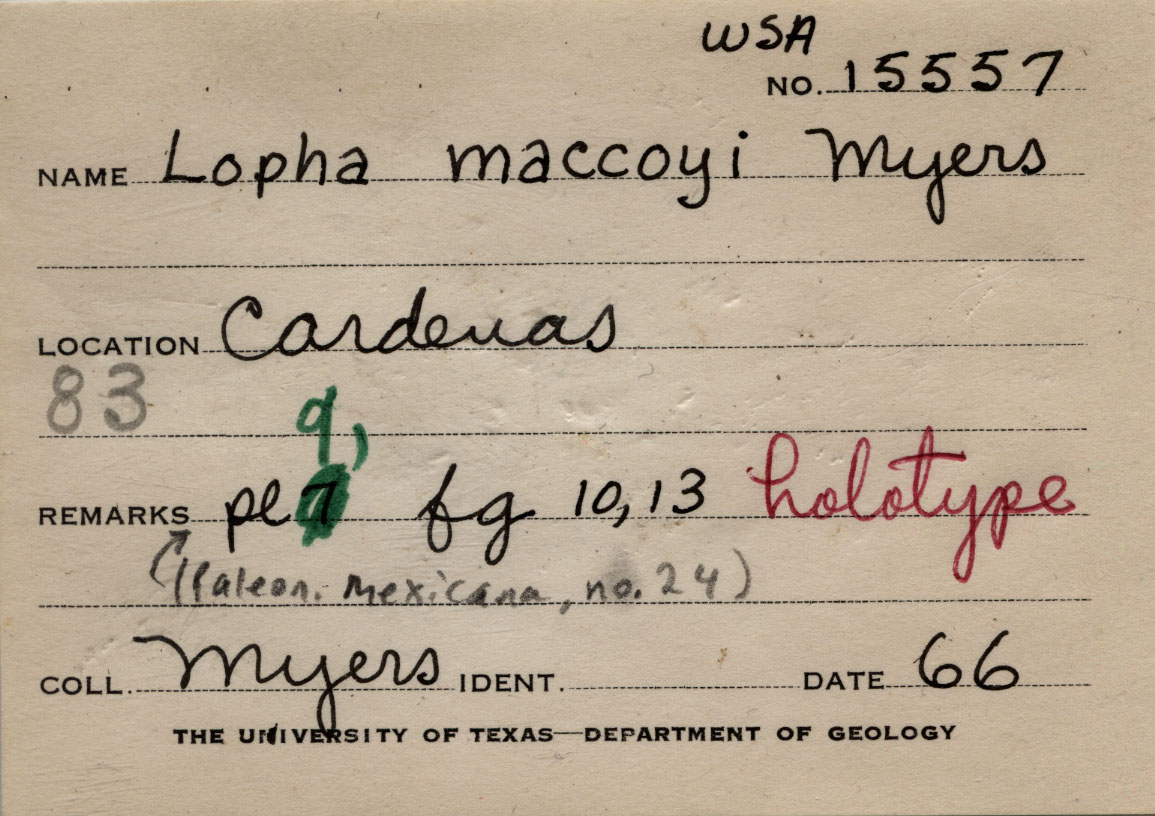 WSA
NO. 15557
NAME Lopha maccoyi Myers
LOCATION Cardenas
83
9,
REMARKS pl 7 fg 10,13 holotype
(Paleon. Mexicana, no. 24)
COLL. Myers IDENT. DATE 66
THE UNIVERSITY OF TEXAS—DEPARTMENT OF GEOLOGY